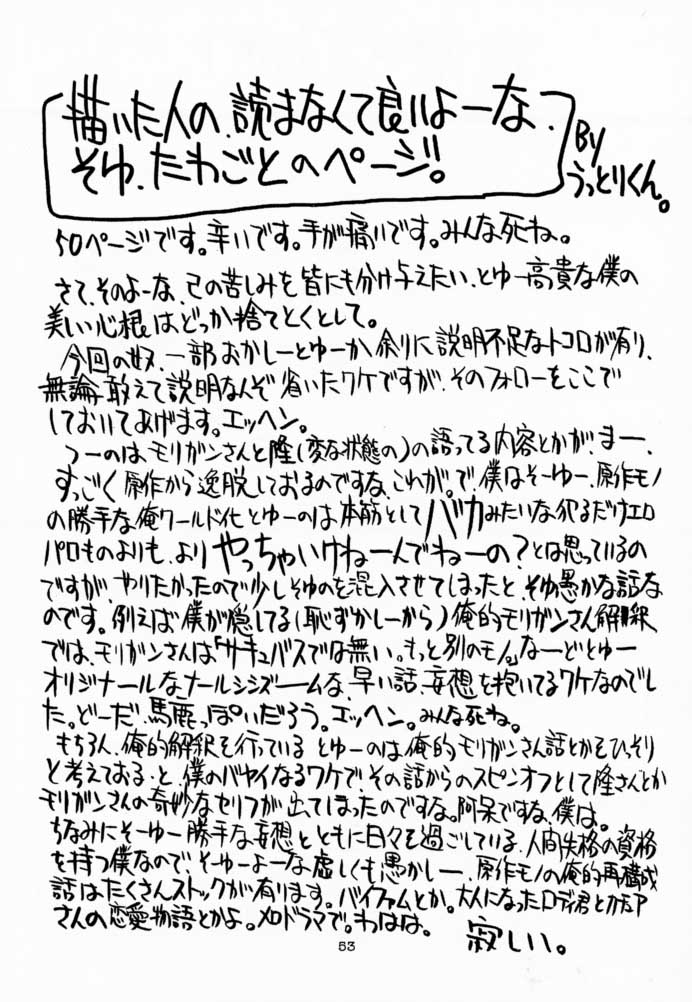 描いた人の、読まなくて良いよーな、
そゆ、たわごとのページ!。
By
うっとりくん。
50ページです。辛いです。手が痛いです。みんな死ね。
さて、そのよーな、己の苦しみを皆にも分け与えたい、とゆー高貴な僕の
美しい心根はどっか捨てとくとして。
今回の奴、一部おかしーとゆーか余りに説明不足なトコロが有り、
無論敢えて説明なんぞ省いたワケですが、そのフォローをここで
しておいてあげます。エッヘン。
つーのは、モリガンさんと隆(変な状態の)の語ってる内容とかが、まー、
すっごく原作から逸脱しておるのですな、これが。で、僕はそーゆー、原作モノ
の勝手な俺ワールド化とゆーのは本筋としてバカみたいな犯るだけエロ
パロものよりも、よりやっちゃいけねーんでねーの?とは思っているの
ですが、やりたかったので少しそゆのを混入させてしまったと、そゆ愚かな話な
のです。例えば僕が隠してる(恥ずかしーから)俺的モリガンさん解釈
では、モリガンさんは「サキュバスでは無い。もっと別のモン」なーどとゆー
オリジナールなナールシシズームな、早い話、妄想を抱いてるワケなのでし
た。どーだ、馬鹿っぽいだろう。エッヘン。みんな死ね。
もちろん、俺的解釈を行っているとゆーのは、俺的モリガンさん話とかをひっそり
と考えておると、僕のバヤイなるワケで、その話からのスピンオフとして隆さんとか
モリガンさんの奇妙なセリフが出てしまったのですな。阿呆ですな、僕は。
ちなみにそーゆー勝手な妄想とともに日々を過ごしている、人間失格の資格
を持つ僕なので、そーゆーよーな虚しくも愚かしー、原作モノの俺的再構成
話はたくさんストックが有ります。バイファムとか。大人になったロディ君とカチュア
さんの恋愛物語とかよ。メロドラマで。わはは。
寂しい。
53